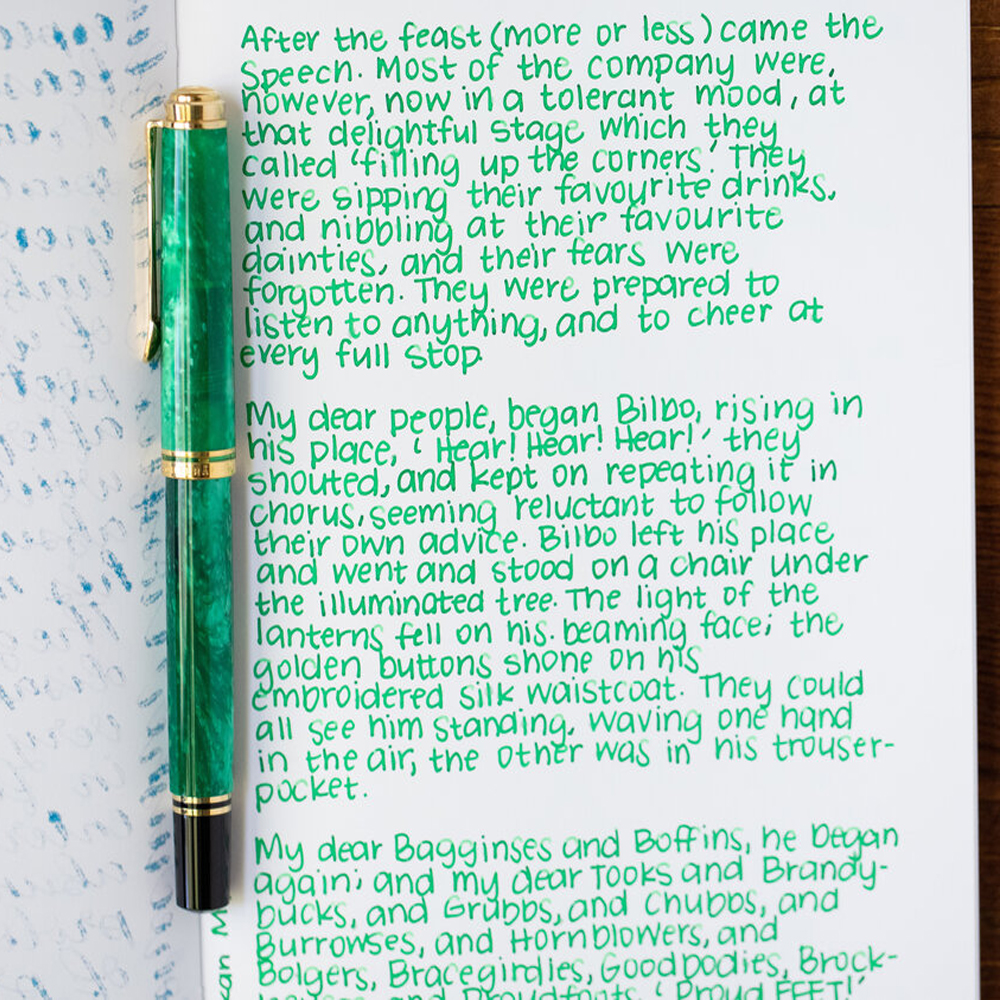 After the feast (more or less) came the
Speech. Most of the company were,
however, now in a tolerant mood, at
that delightful stage which they
called 'filling up the corners'. They
were sipping their favourite drinks,
and nibbling at their favourite
dainties, and their fears were
forgotten. They were prepared to
listen to anything, and to cheer at
every full stop.
My dear people, began Bilbo, rising in
his place, 'Hear! Hear! Hear!' they
shouted, and kept on repeating it in
chorus, seeming reluctant to follow
their own advice. Bilbo left his place
and went and stood on a chair under
the illuminated tree. The light of the
lanterns fell on his. beaming face; the
golden buttons shone on his
embroidered silk waistcoat. They could
all see him standing, waving one hand
in the air, the other was in his trouser-
pocket.
My dear Bagginses and Boffins, he began
again; and my dear Tooks and Brandy-
bucks, and Grubbs, and Chubbs, and
Burrowses, and Hornblowers, and
Bolgers, Bracegirdles, Goodbodies, Brock-
and Proudfoots. 'Proud FEET!'